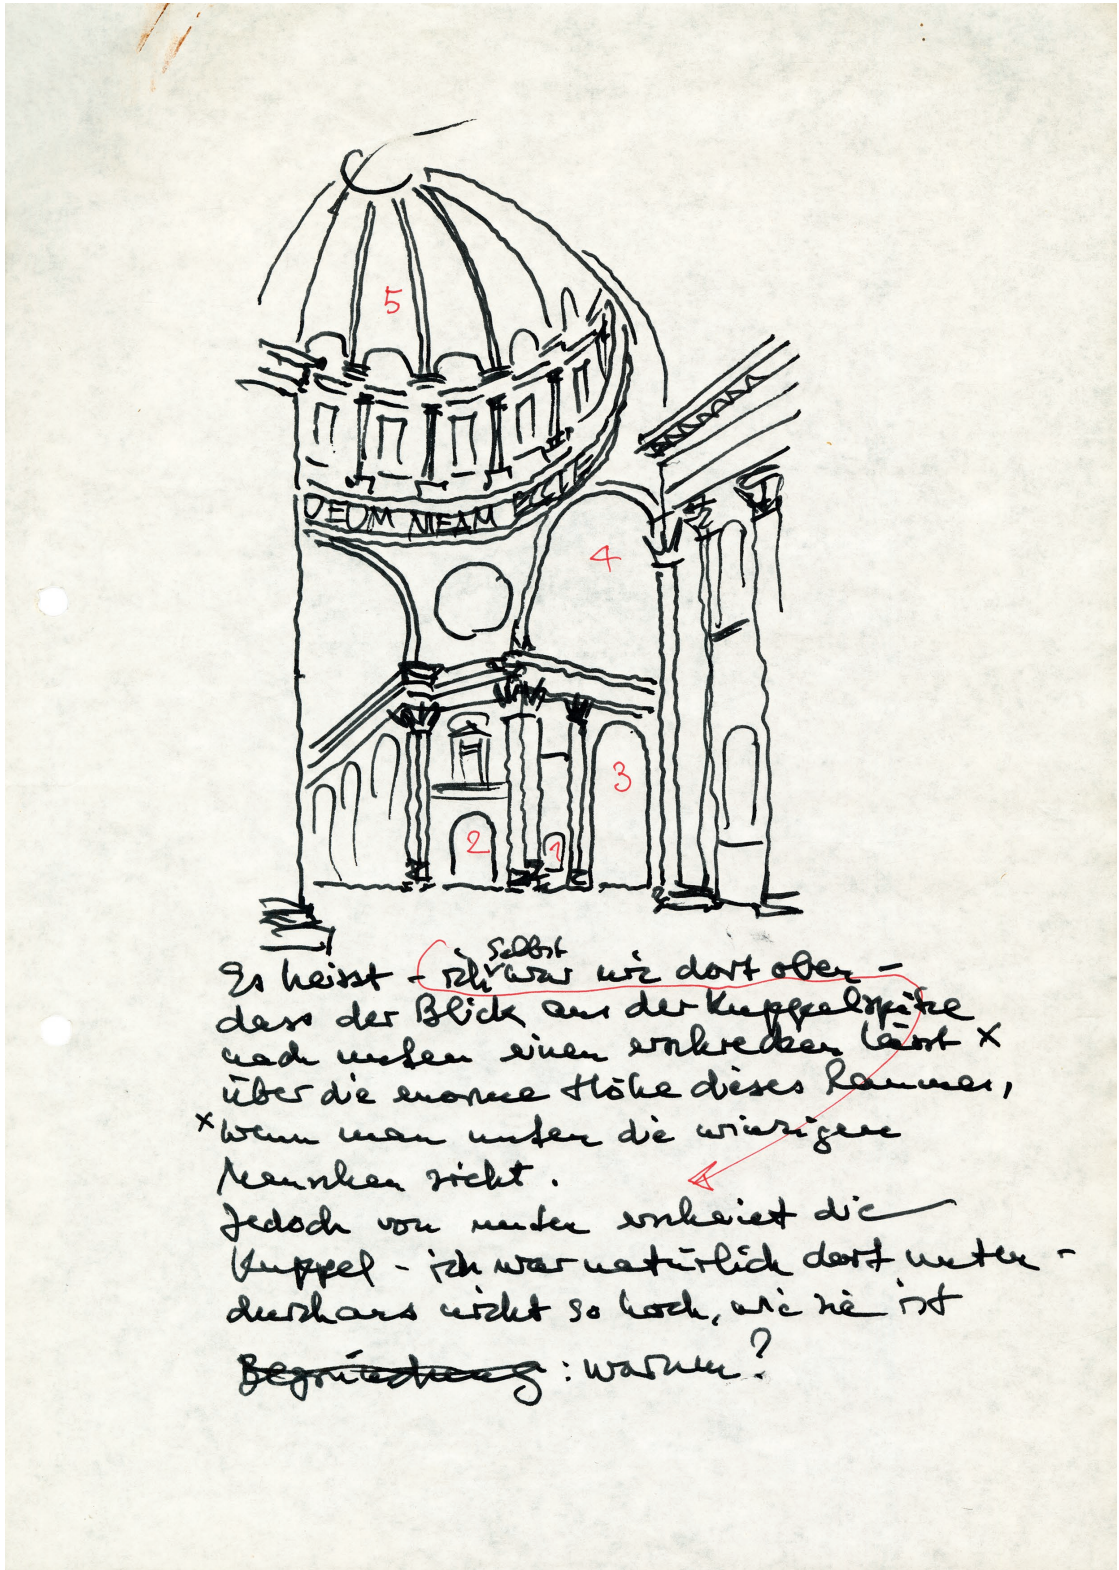 5
DEUM MEAM ECCLE
4
3
2
1
selbst
Es heisst - ich war nie dort oben -
dass der Blick aus der Kuppelspitze
nach unten einen erschrecken lässt x
über die enorme Höhe dieses Raumes,
x wenn man unten die winzigen
Menschen sieht.
Jedoch von unten erscheint die
Kuppel - ich war natürlich dort unten -
durchaus nicht so hoch, wie sie ist
Begründung : warum?